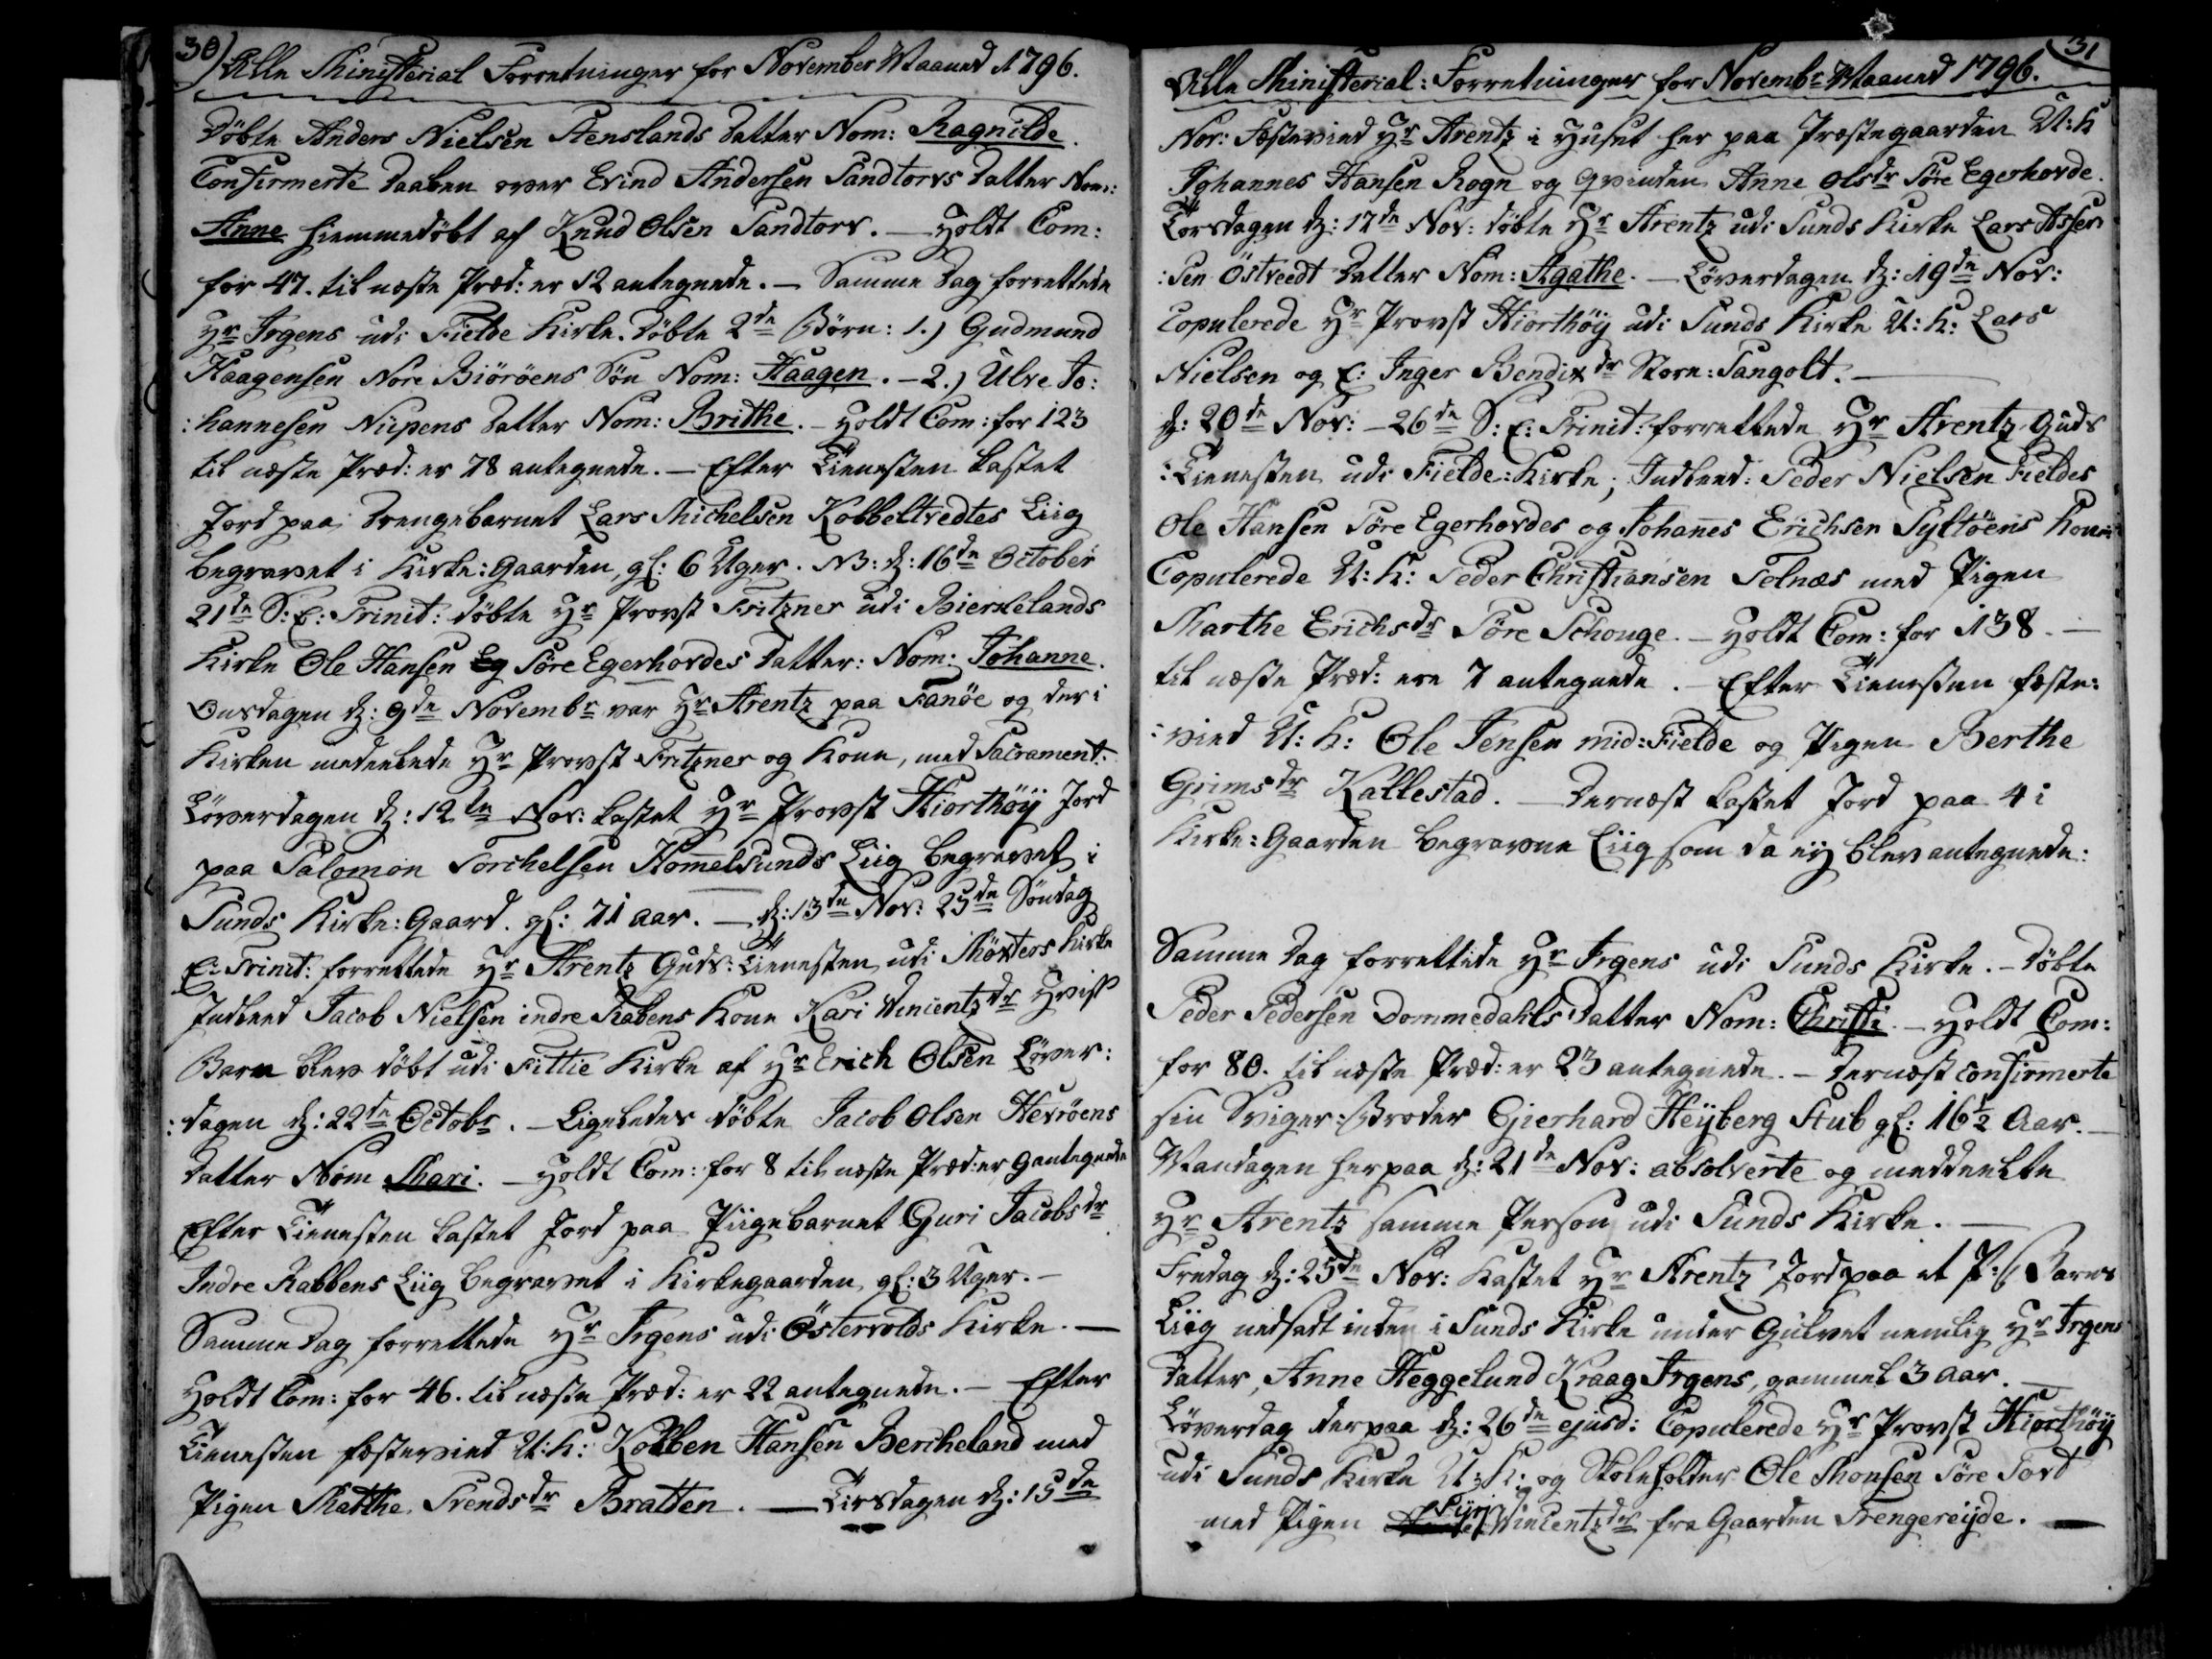 30) Alle Ministerial Forretninger for November Maaned 1796.
Döbte Anders Nielsen Stenslands Datter Nom: Ragnilde.
Confirmerte Daaben over Evind Andersen Sandtorvs Datter Nom:
Anne hiemmedöbt af Knud Olsen Sandtorv. — Holdt Com:
for 47. til næste Præd: er 12 antegnede. — Samme Dag forrettede
Hr Irgens udi Fielde Kirke. Döbte 2de Börn: 1.) Gudmund
Haagensen Nore Biöröens Sön Nom: Haagen. — 2.) Ulve Jo:
:hannesen Nüpens Datter Nom: Brithe. — Holdt Com: for 123
til næste Præd: er 78 antegnede. — Efter Tienesten kastet
Jord paa Drengebarnet Lars Michelsen Kobbeltvedtes Liig
begravet i Kirke:Gaarden, gl: 6 Uger. NB: d: 16de October
21de S: E: Trinit: döbte Hr Provst Fritzner udi Bierkelands
Kirke Ole Hansen Eg Söre Egerhovdes Datter: Nom: Johanne.
Onsdagen d: 9de Novembr var Hr Arentz paa Fanöe og der i
Kirken medeelede Hr Provst Fritzner og Kone, med Sacrament:
Löverdagen d: 12te Nov: kastet Hr Provst Hiorthöÿ Jord
paa Salomon Torchelsen Hom̅elsunds Liig begravet i
Sunds Kirke:Gaard. gl: 71 aar. — d: 13de Nov: 25de Söndag
E: Trinit: forrettede Hr Arentz Guds:Tienesten udi Möxters Kirke
Indleed Jacob Nielsen indre Rabens Kone Kari Vincentzdr hvis
Barn blev döbt udi Fittie Kirke af Hr Erich Olsen Löver:
:dagen d: 22de Octobr. — Ligeledes döbte Jacob Olsen Hevröens
Datter Nom Mari. — Holdt Com: for 8 til næste Præd: er 9 antegnede
Efter Tienesten kastet Jord paa Piigebarnet Guri Jacobsdr
Indre Rabbens Liig begravet i Kirkegaarden, gl: 3 Uger. —
Samme Dag forrettede Hr Irgens udi Östervolds Kirke. —
Holdt Com: for 46. til næste Præd: er 22 antegnede. — Efter
Tienesten fæstevied U: K: Kolben Hansen Bercheland med
Pigen Marthe Trendsdr Bratten. — Tirsdagen d: 15de
Alle Ministerial: Forretninger for Novembr Maaned 1796. (31
Nov: Fæstevied Hr Arentz i Huset her paa Præstegaarden U: K
Johannes Hansen Rogn og Qvinden Anne Olsdr Söre Egerhovde.
Torsdagen d: 17de Nov: döbte Hr Arentz udi Sunds Kirke Lars Asser:
:sen Östveedt Datter Nom: Agathe. — Löverdagen d: 19de Nov:
Copulerede Hr Provst Hiorthöÿ udi Sunds Kirke U: K: Lars
Nielsen og E: Inger Bendixdr Store:Sangolt. —
d: 20de Nov: — 26de S: E: Trinit: forrettede Hr Arentz Guds
:Tienesten udi Fielde:Kirke; Indleed: Peder Nielsen Fieldes
Ole Hansen Söre Egerhovdes og Johan̅es Erichsen Syltöens Koner
Copulerede U: K: Peder Christiansen Tolnæs med Pigen
Marthe Erichsdr Söre Schouge. — Holdt Com: for 138. —
til næste Præd: ere 7 antegnede. — Efter Tienesten fæste:
:vied U: K: Ole Jensen mid:Fielde og Pigen Berthe
Grimsdr Kallestad. — Dernæst kastet Jord paa 4 i
Kirke:Gaarden begravne Liig som da eÿ blev antegnede:
Samme Dag forrettede Hr Irgens udi Sunds Kirke. — Döbte
Peder Pedersen Dommedahls Datter Nom: Christi. — Holdt Com:
for 80. til næste Præd: er 23 antegnede. — Dernæst confirmerte
sin Sviger:Broder Gierhard Heÿberg Stub gl: 16½ Aar. —
Mandagen herpaa d: 21de Nov: absolverte og meddeelte
Hr Arentz samme Person udi Sunds Kirke. —
Fredag d: 25de Nov: kastet Hr Arentz Jord paa et P: Barns
Liig nedsadt inden i Sunds Kirke under Gulvet nemlig Hr Irgens
Datter, Anne Heggelund Kraag Irgens, gammel 3 aar. —
Löverdag derpaa d: 26de ejusd: Copulerede Hr Provst Hiorthöÿ
udi Sunds Kirke U: K: og Skoleholder Ole Monsen Söre Tovt
med Pigen Siri Vincentzdr fra Gaarden Trengereÿde. —